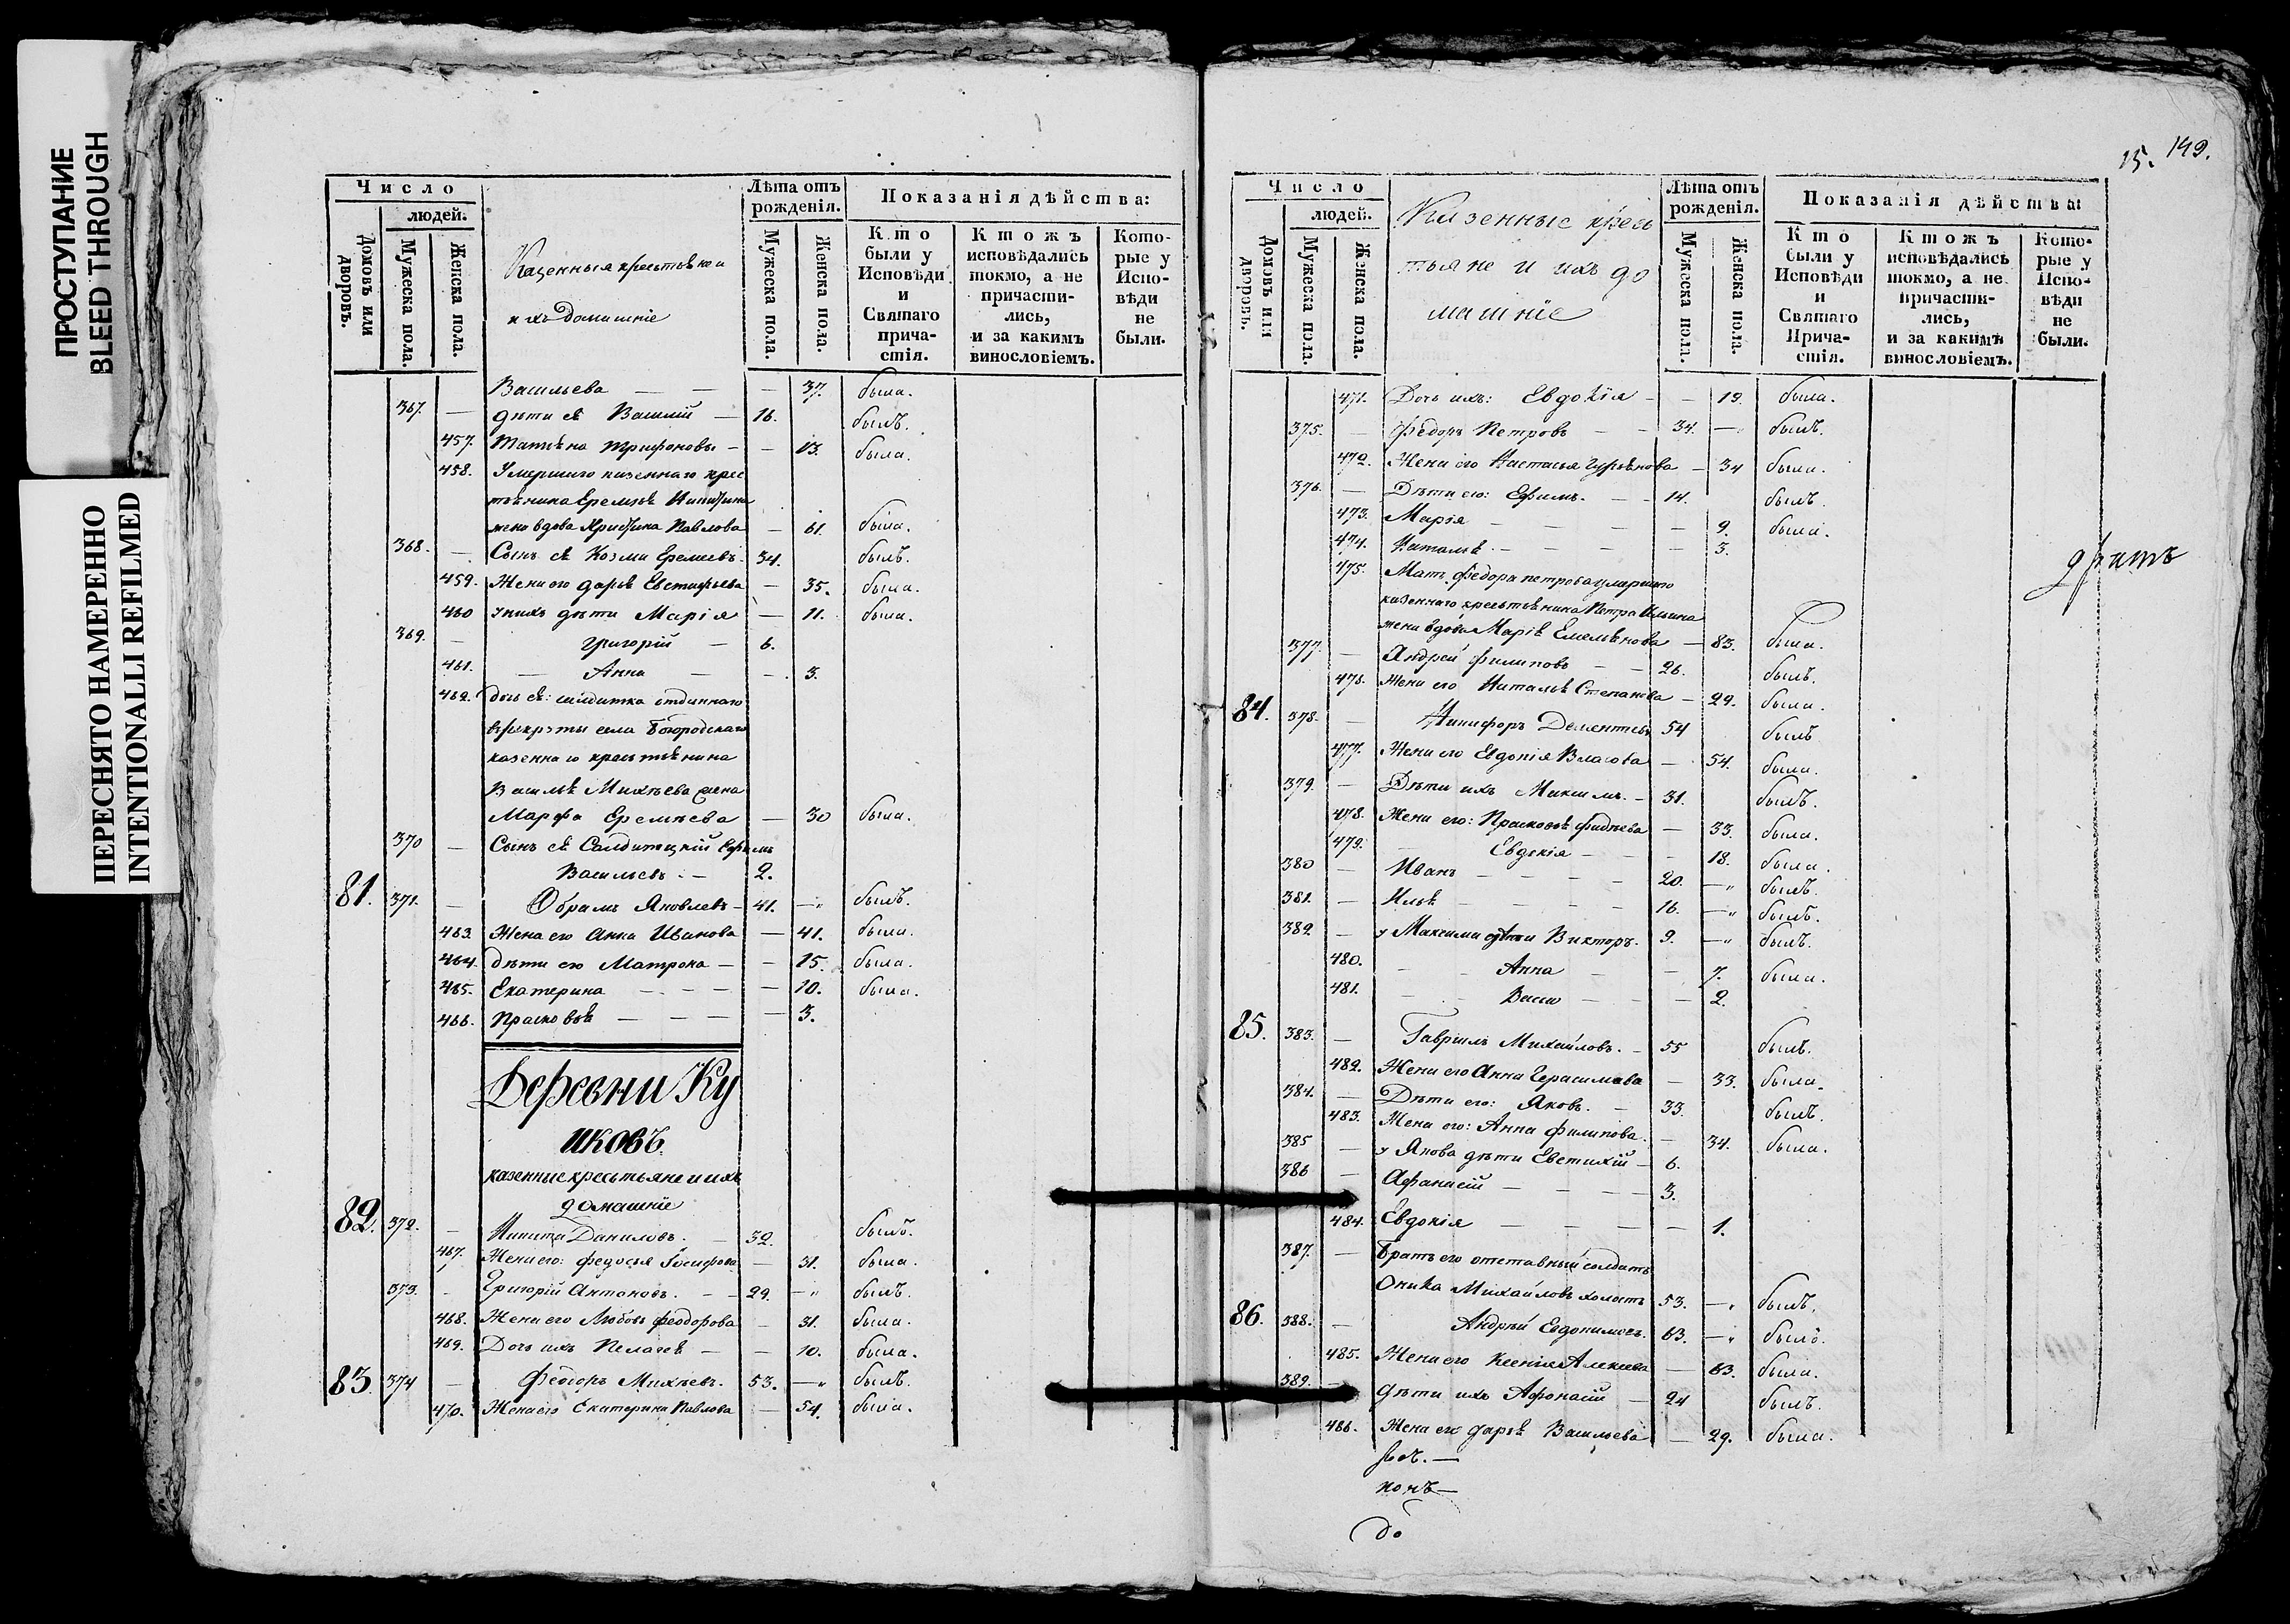 ПРОСТУПАНИЕ
BLEED THROUGH
ПЕРЕСНЯТО НАМЕРЕННО
INTENTIONALLI REFILMED
Число
людей.
Домовъ или дворовъ.
Мужеска пола.
Женска пола.
Казенныя крестьяне и
ихъ домашніе
Лѣта отъ рожденія.
Мужеска пола.
Женска пола.
Показанія дѣйства:
Кто были у Исповѣди и Святаго причастія.
Ктожъ исповѣдались токмо, а не причастились, и за какимъ винословіемъ.
Которые у Исповѣди не были.
Васильева — — — 37. была.
367. — дѣти ея Василій — 16. былъ.
457. Татьяна Трифоновы — — 13. была.
458. Умершаго казеннаго крес
тьянина Еремѣя Никитина
жена вдова Христина Павлова — 61. была.
368. — Сынъ ея Козма Еремѣевъ 34. былъ.
459. Жена его Дарья Евстафьева — 35. была.
460 у нихъ дѣти Марія — 11. была.
369. — Григорій — 6.
461. — Анна — — 3.
462. дочь ея: солдатка отданнаго
в рекруты села Богородскаго
казеннаго крестьянина
Василья Михѣева жена
Марфа Еремѣева — 30 была.
370 — Сынъ ея Салдатскій Ефимъ
Васильевъ. — 2.
81. 371. — Абрамъ Яковлевъ — 41. — былъ.
463. Жена его Анна Иванова — 41. была.
464. дѣти его Матрона — — 15. была.
465. Екатерина — — — — 10. была.
466. Прасковья — — — — 3.
Деревни Ку
иковъ
казенные крестьяне и ихъ
домашніе
82. 372. — Никита Даниловъ. — 32. былъ.
467. Жена его: Федосья Іосифова — 31. была.
373. — Григорій Антоновъ. — — 29. — былъ.
468. Жена его Любовь Феодорова — 31. была.
469. Дочь ихъ Пелагея — — 10. была.
83. 374 — Феодоръ Михѣевъ. 53. — былъ.
470. Жена его Екатерина Павлова — 54. была.
15. 149.
Число
людей.
Домовъ или дворовъ.
Мужеска пола.
Женска пола.
Казенные кресь
тьяне и ихъ до
машніе
Лѣта отъ рожденія.
Мужеска пола.
Женска пола.
Показанія дѣйства:
Кто были у Исповѣди и Святаго Причастія.
Ктожъ исповѣдались токмо, а не причастились, и за какимъ винословіемъ.
Которые у Исповѣди не были.
471. Дочь ихъ: Евдокія — — 19. была.
375. — Федоръ Петровъ — — 34. — былъ.
472. Жена его Настасья Гурьянова — 34 была.
376. — Дѣти его: Ефимъ. — — 14. былъ.
473. Марія — — — — 9. была.
474. Наталья — — — — 3.
475. Мать Федора Петрова умершаго
казеннаго крестьянина Петра Ильина
жена вдова Марія Емельянова — 83. была.
377. — Андрей Филиповъ — — 26. былъ.
476. Жена его Наталья Степанова — 29. была.
84. 378. — Никифоръ Дементьевъ 54 былъ
477. Жена его Евдокія Власова — 54. была.
379. — Дѣти ихъ Максимъ. — 31. былъ.
478. Жена его: Прасковья Фадѣева — 33. была.
479. — Евдокія — — — 18. была.
380 — Иванъ — — — — 20. — былъ.
381. — Илья — — — — 16. — былъ.
382 — у Максима дѣти Викторъ. 9. — былъ.
480. — — Анна — — 7. была.
481. — — Васса — — 2.
85. 383. — Гаврилъ Михайловъ. — 55 былъ.
482. Жена его Анна Герасимова — 33. была.
384. — Дѣти его: Яковъ. — 33. былъ.
483. Жена его: Анна Филипова. — 34. была.
385 — у Якова дѣти Евстихій — 6.
386 — Афанасій — — — — 3.
484. Евдокія — — — — 1.
387. — Братъ его отставный солдатъ
Оника Михайловъ холостъ 53. — былъ.
86. 388. — Андрѣй Евдокимовъ. 63. — былъ.
485. Жена его Ксенія Алексеева — 63. была.
389. — дѣти ихъ Афонасій — 24 былъ.
486. Жена его Дарья Васильева — 29. была.
до